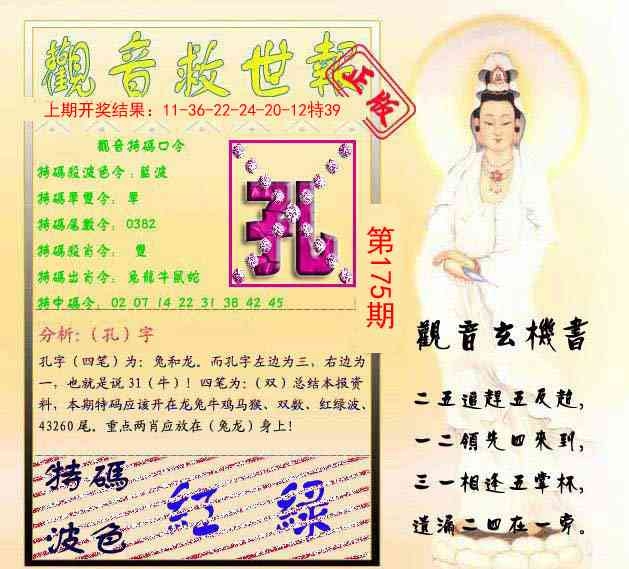 觀音救世報
正版
上期开奖结果：11-36-22-24-20-12特39
觀音特碼口令
特碼段波色令：藍波
特碼單雙令： 單
特碼尾數令： 0382
特碼段肖令： 雙
特碼出肖令： 兔龍牛鼠蛇
特中碼令： 02 07 14 22 31 38 42 45
孔
第175期
分析:（孔）字
孔字（四笔）为：兔和龙。而孔字左边为三，右边为
一，也就是说 31（牛）！四笔为：（双）总结本报资
料，本期特码应该开在龙兔牛鸡马猴、双数、红绿波、
43260 尾。重点两肖应放在（兔龙）身上！
特碼
波色
紅 綠
觀音玄機書
二五追趕五反趙，
一二領先四來到，
三一相逢五掌杯，
遺漏二四在一旁。